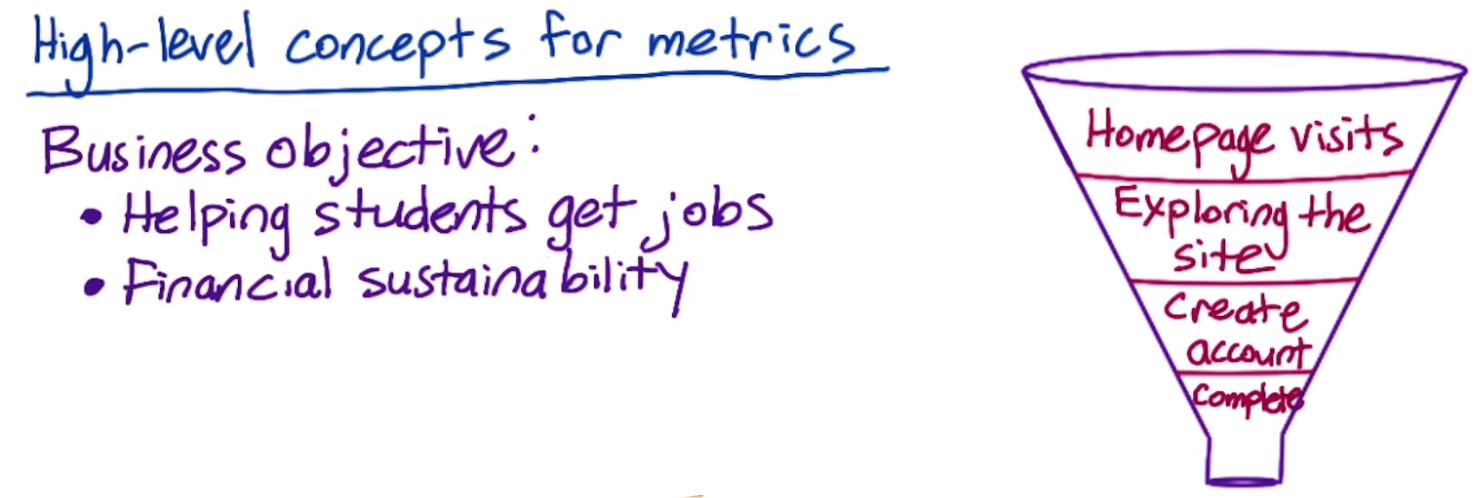 High-level concepts for metrics
Business objective:
• Helping students get jobs
• Financial sustainability
Homepage visits
Exploring the
site
Create
account
Complete